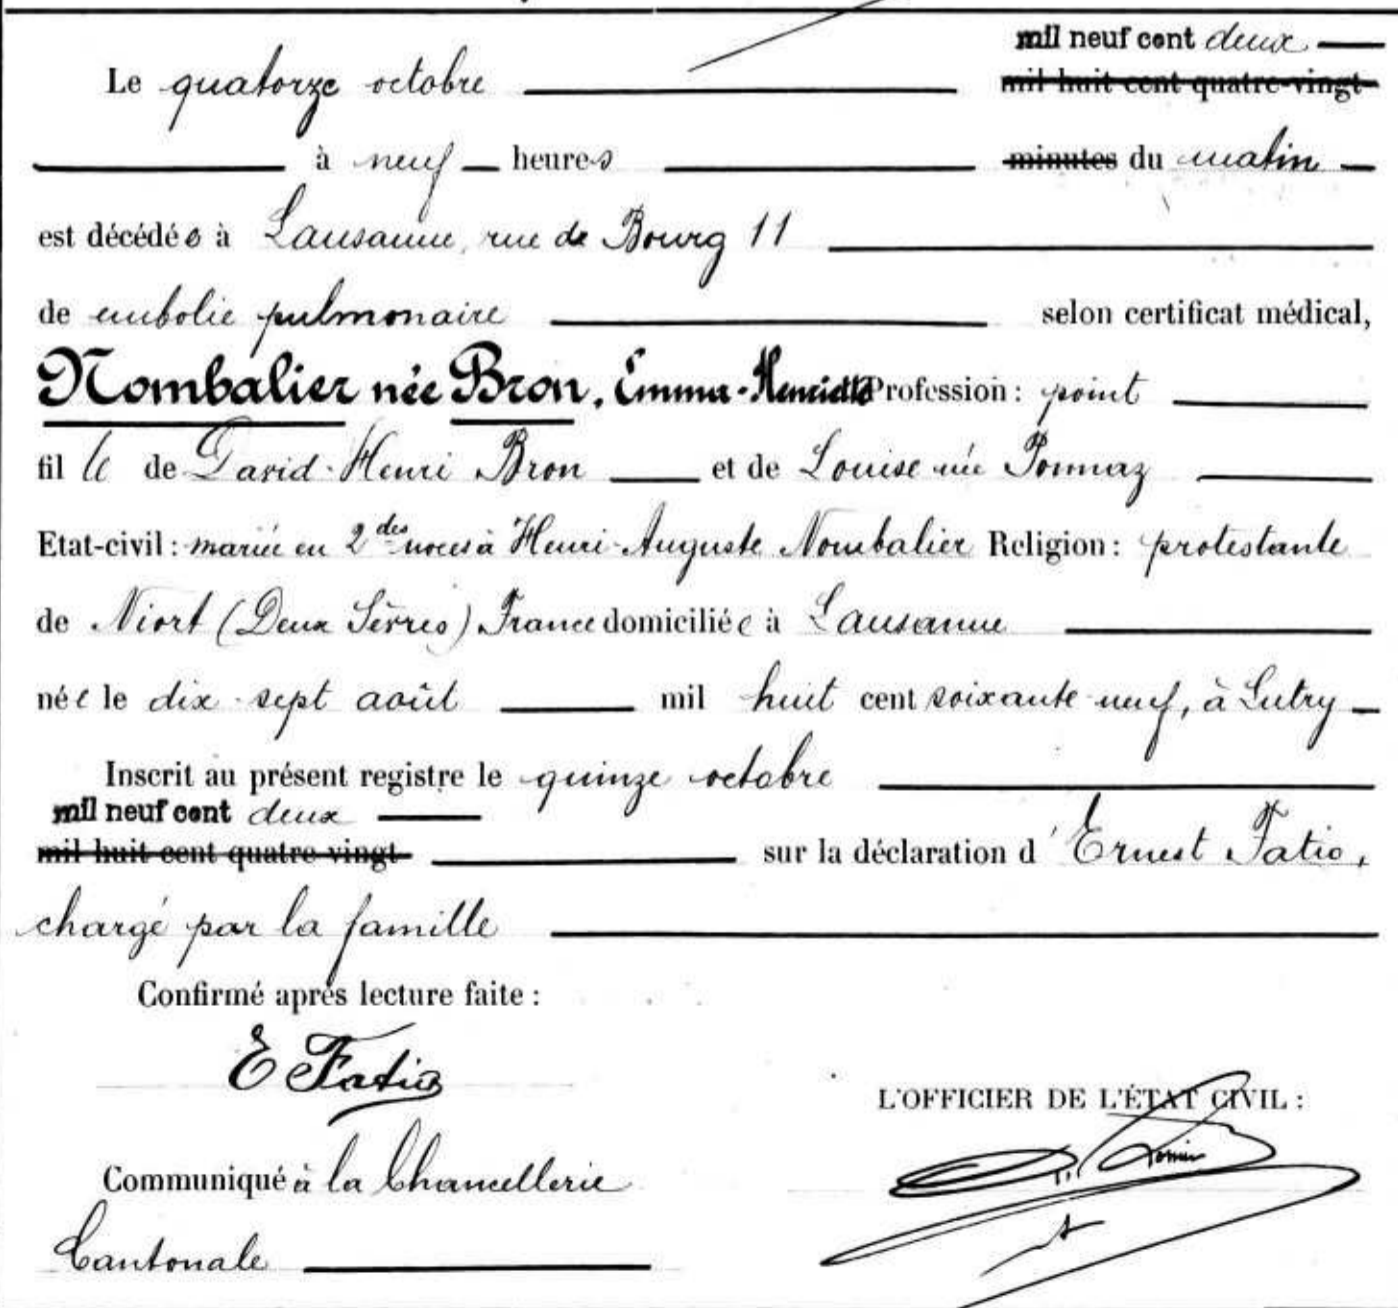 mil neuf cent deux
Le quatorze octobre mil huit cent quatre-vingt-
à neuf heures minutes du matin
est décédée à Lausanne, rue de Bourg 11
de embolie pulmonaire selon certificat médical,
Nombalier née Bron, Emma-Henriette Profession : point
fille de David-Henri Bron et de Louise née Ponnaz
Etat-civil : mariée en 2des noces à Henri-Auguste Nombalier Religion : protestante
de Niort (Deux Sèvres) France domiciliée à Lausanne
née le dix-sept août mil huit cent soixante-neuf, à Lutry
Inscrit au présent registre le quinze octobre
mil neuf cent deux
mil huit cent quatre-vingt- sur la déclaration d'Ernest Fatio,
chargé par la famille
Confirmé après lecture faite :
E Fatio
L'OFFICIER DE L'ÉTAT CIVIL :
Communiqué à la Chancellerie
Cantonale